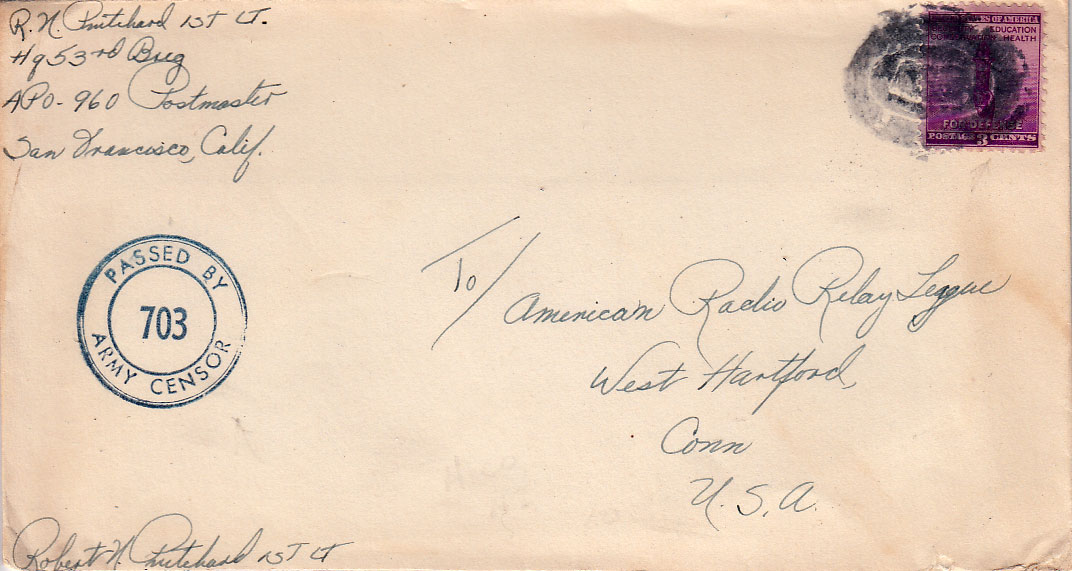 R. N. Pritchard 1ST LT.
Hq 53rd Brig
APO-960 Postmaster
San Francisco, Calif.
STATES OF AMERICA
EDUCATION
HEALTH
FOR DEFENSE
POSTAGE 3 CENTS
PASSED BY
703
ARMY CENSOR
To/
American Radio Relay League
West Hartford
Conn
U.S.A.
Robert N. Pritchard 1ST LT